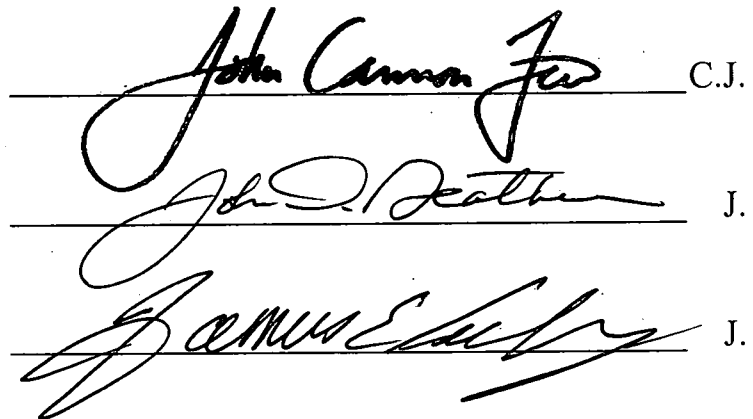 John Cannon Few C.J.
John D. Geathers J.
James E. Lockemy J.